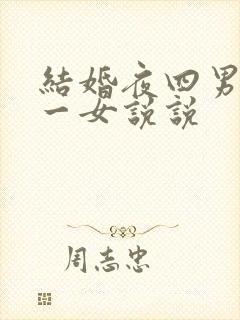 結婚夜四男
一女說說
周志忠